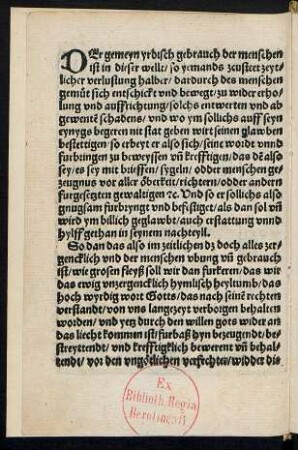 DEr gemeyn yrdisch gebrauch der menschen
ist in diser wellt / so yemands zcusteet zeyt-
licher verlustung halber / dardurch des menschen
gemüt sich entschickt vnd bewegt / zu wider erho-
lung vnd auffrichtung / solchs entwerten vnd ab
gewentē schadens / vnd wo ym sollichs auff seyn
eynygs begeren nit stat geben wirt seinen glawben
bestettigen / so erbeyt er also sich / seine wordt vnnd
furbingen zu beweyssen vñ krefftigen / das dē also
sey / es sey mit brieffen / sygeln / odder menschen ge-
zeugnus vor aller öberkeit / richtern / odder andern
furgesetzten gewaltigen ꝛc. Vnd so er sollichs also
gnugsam furbryngt vnd befestiget / als dan sol vñ
wird ym billich geglawbt / auch erstattung vnnd
hylff gethan in seynem nachteyll.
So dan das also im zeitlichen dz doch alles zer-
gencklich vnd der menschen vbung vñ gebrauch
ist / wie grosen fleyß soll wir dan furkeren / das wir
das ewig vnzergencklich hymlisch heyltumb / das
hoch wyrdig wort Gotts / das nach seinē rechten
verstandt / von vns langezeyt verborgen behalten
worden / vnd yetz durch den willen gots wider an
das liecht kommen ist / furbaß hyn bezeugendt / be-
streyttendt / vnd krefftigklich bewerent vñ behal-
tendt / vor den vngötlichen verfechten / widder die
Ex
Biblioth. Regia
Berolinensi